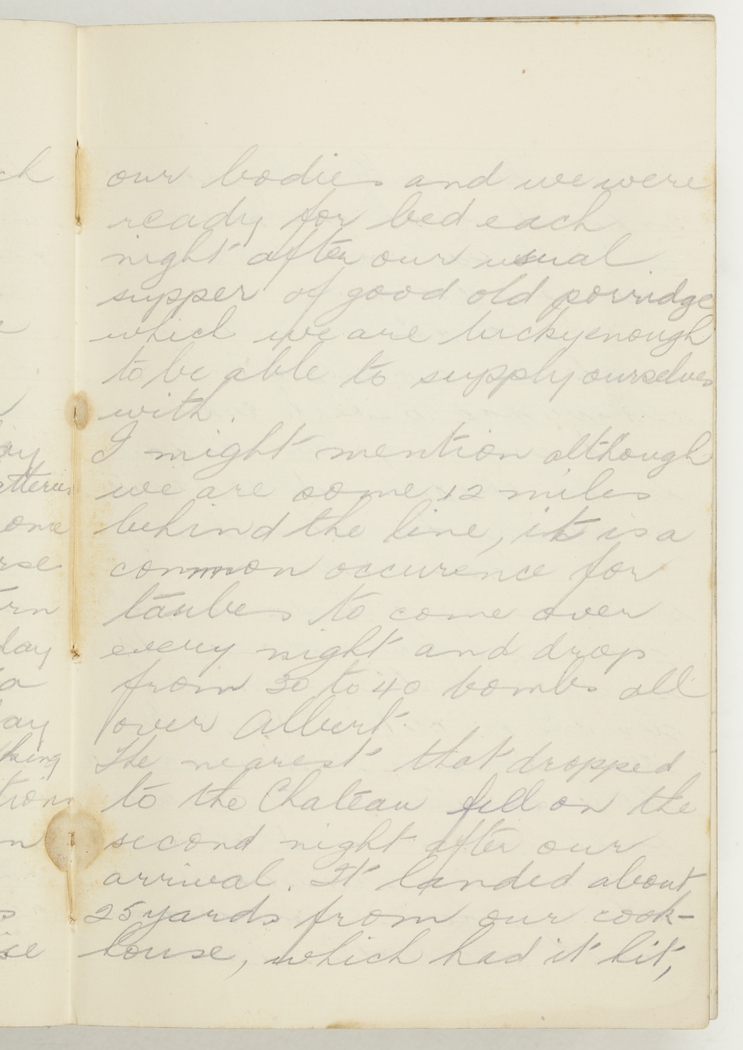 our bodies and we were
ready for bed each
night after our usual
supper of good old porridge
which we are lucky enough
to be able to supply ourselves
with.
I might mention although
we are some 12 miles
behind the line, it is a
common occurence for
taubes to come over
every night and drop
from 30 to 40 bombs all
over Albert.
The nearest that dropped
to the Chateau fell on the
second night after our
arrival. It landed about
25 yards from our cook-
house, which had it hit,